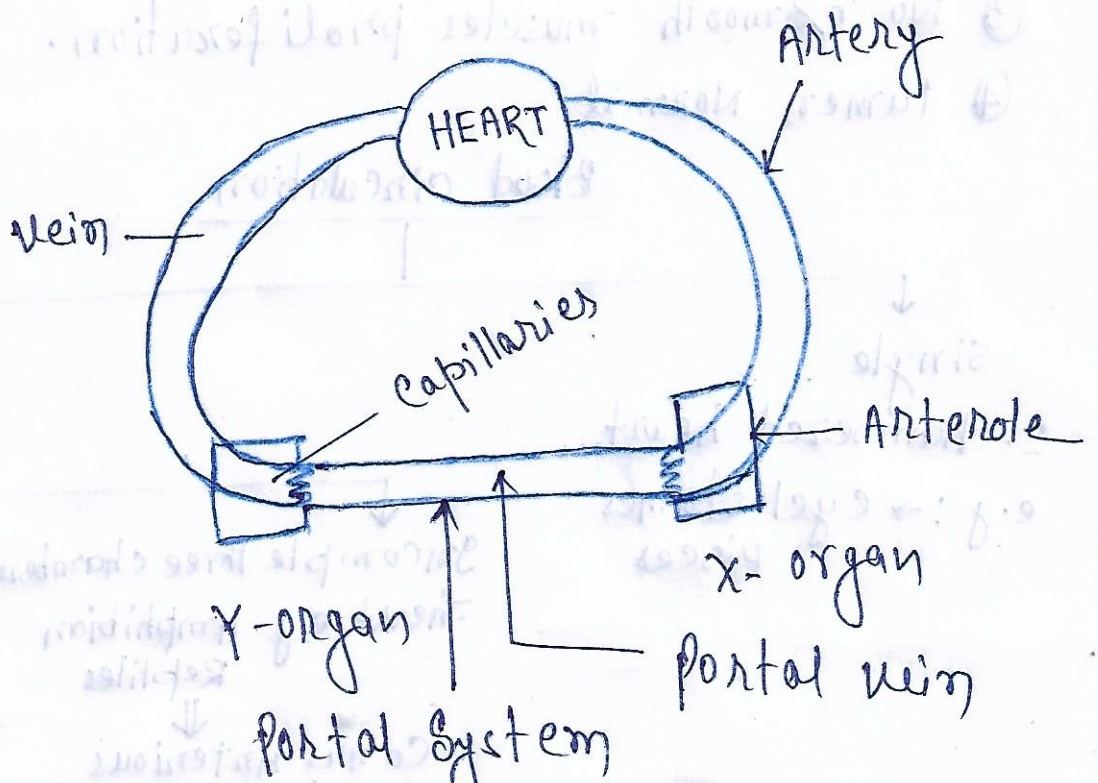 Artery
HEART
Vein
Capillaries
Arterole
X-organ
Y-organ
Portal vein
Portal System